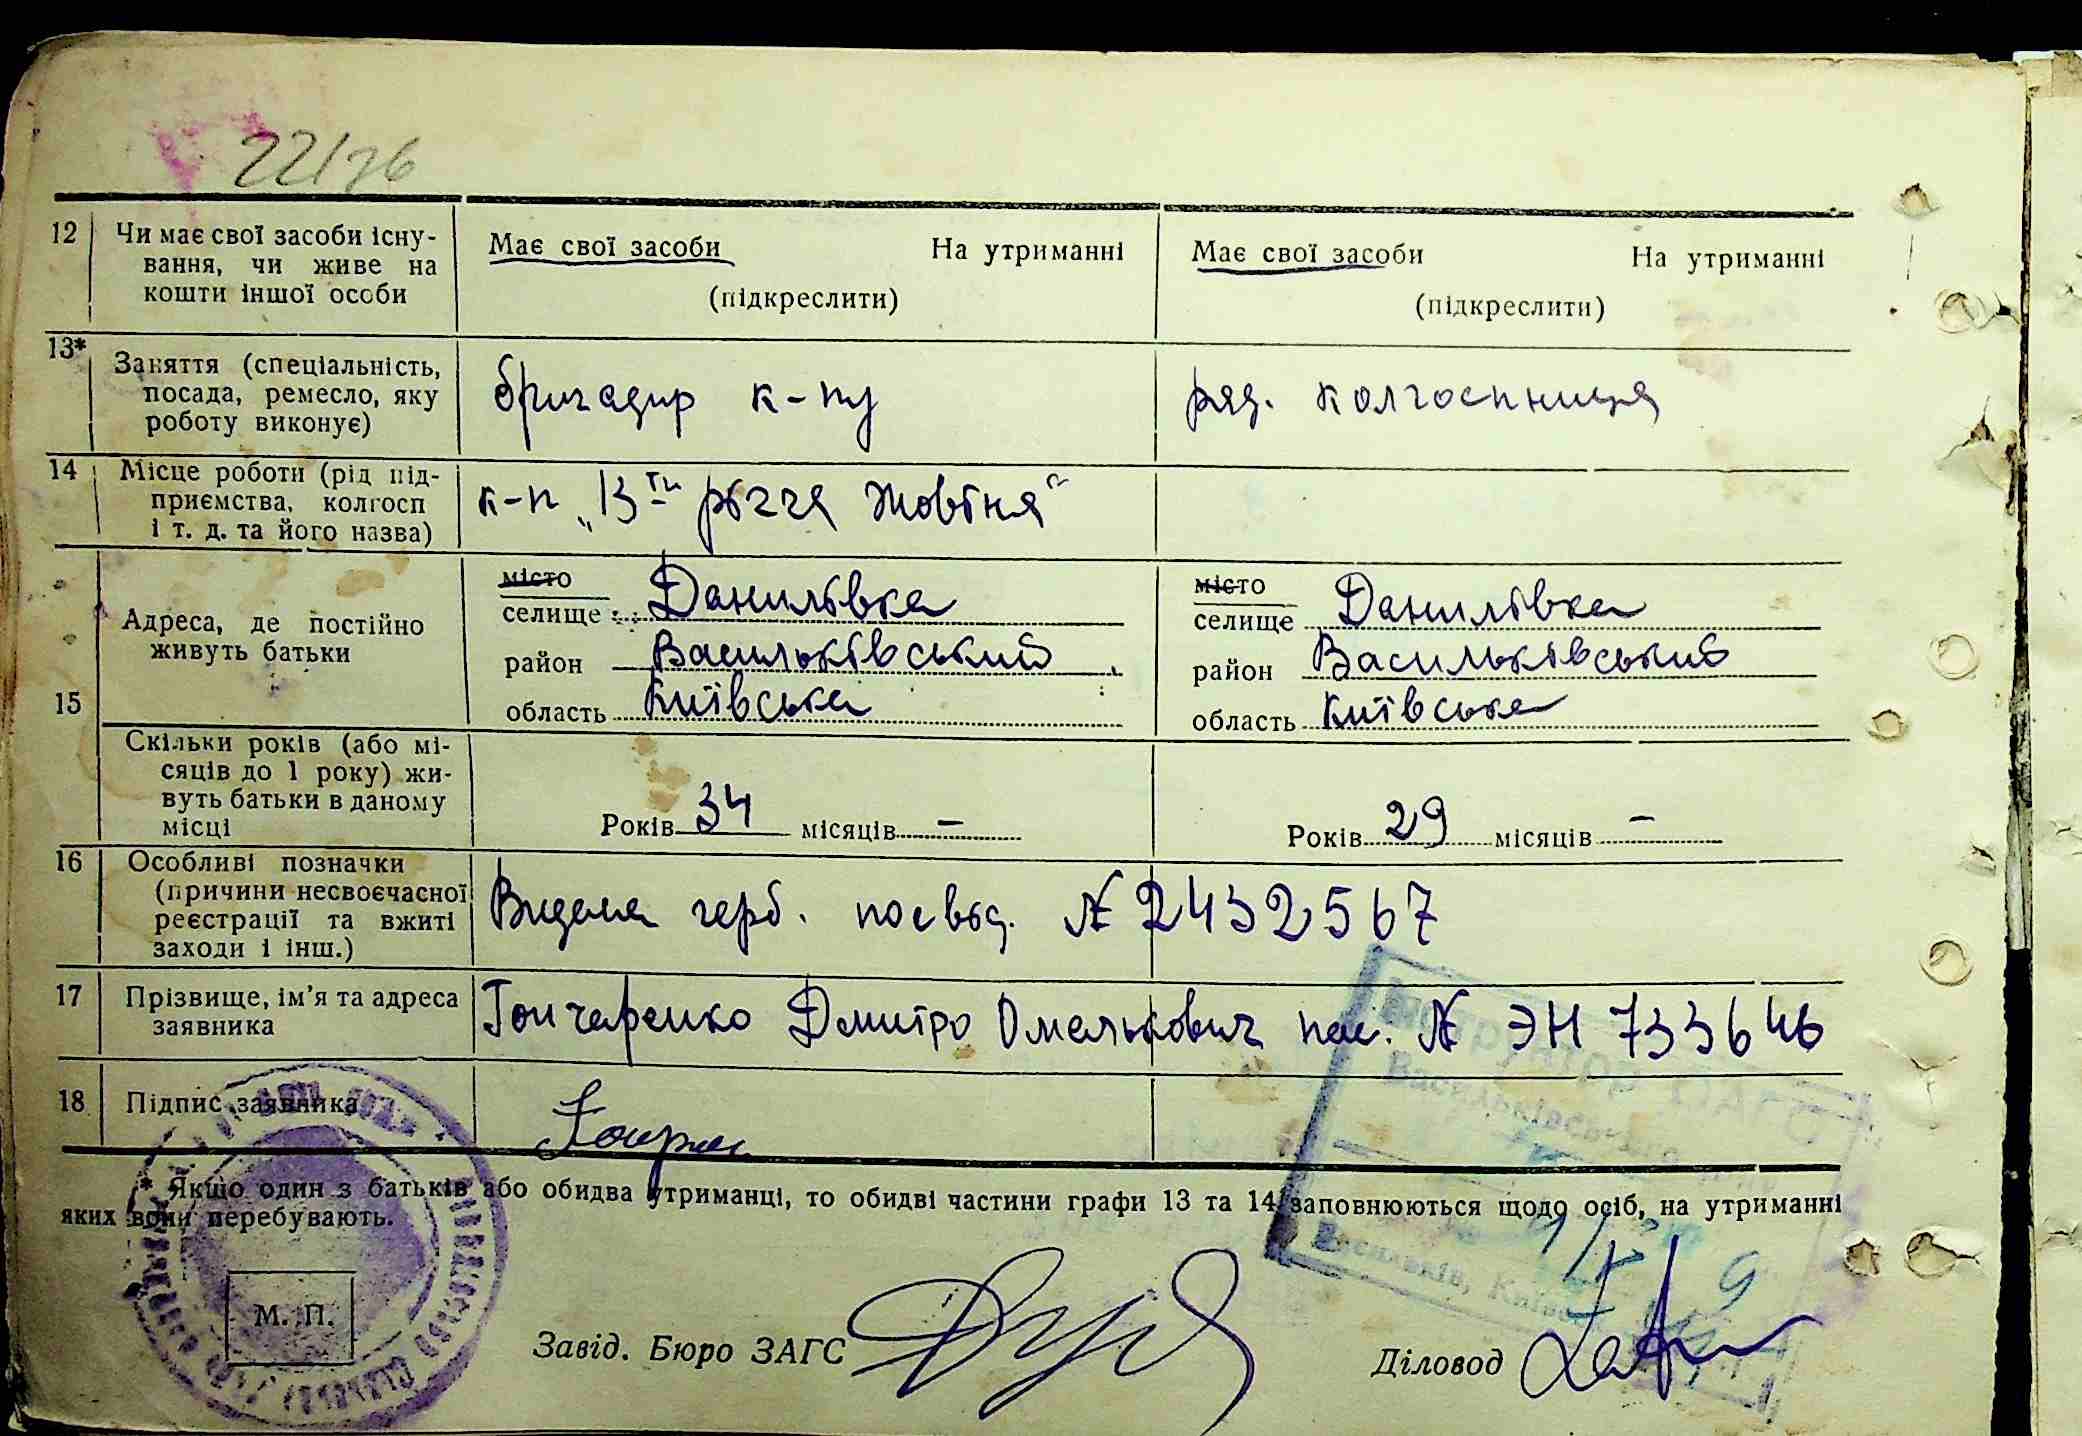 22/76
12 Чи має свої засоби існу-
вання, чи живе на
кошти іншої особи
Має свої засоби На утриманні
(підкреслити)
Має свої засоби На утриманні
(підкреслити)
13* Заняття (спеціальність,
посада, ремесло, яку
роботу виконує)
бригадир к-пу
ряд. колгоспниця
14 Місце роботи (рід під-
приємства, колгосп
і т. д. та його назва)
к-п „13-ти річчя Жовтня"
15 Адреса, де постійно
живуть батьки
місто
селище Данилівка
район Васильківський
область Київська
місто
селище Данилівка
район Васильківський
область Київська
Скільки років (або мі-
сяців до 1 року) жи-
вуть батьки в даному
місці
Років 34 місяців –
Років 29 місяців –
16 Особливі позначки
(причини несвоєчасної
реєстрації та вжиті
заходи і інш.)
Видана герб. посвід. № 2432567
17 Прізвище, ім'я та адреса
заявника
Гончаренко Дмитро Омелькович пас. № ЭН 733646
18 Підпис заявника
* Якщо один з батьків або обидва утриманці, то обидві частини графи 13 та 14 заповнюються щодо осіб, на утриманні
яких вони перебувають.
М. П.
Завід. Бюро ЗАГС
Діловод